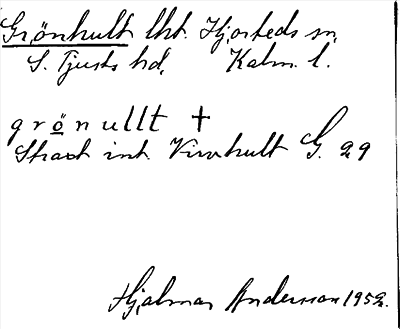 Grönhult lht. Hjorteds sn,
S. Tjusts hd, Kalm. l.
grönullt †
Strax int. Virvhult G. 29
Hjalmar Andersson 1952.